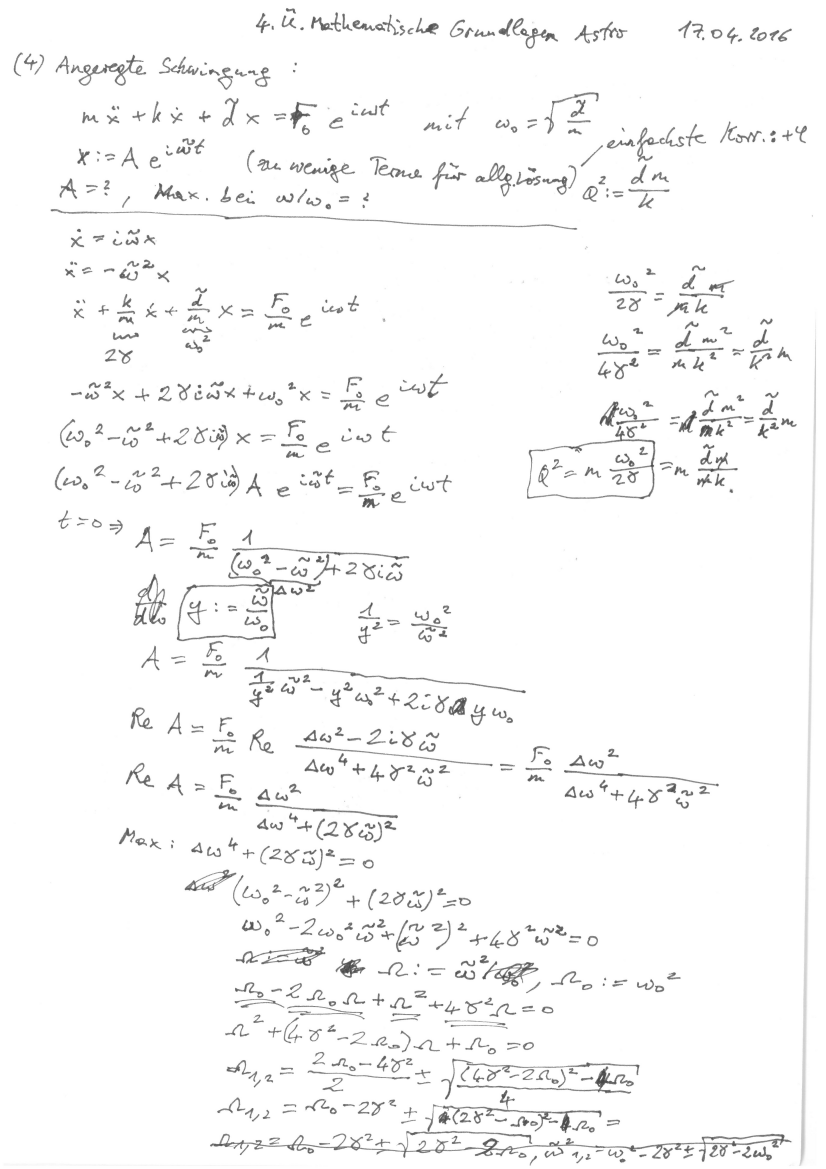 4. Ü. Mathematische Grundlagen Astro 17.04.2016
(4) Angeregte Schwingung :
mẍ + kẋ + d̃ x = F₀ e^{iωt} mit ω₀ = √(d̃/m)
x := A e^{iω̃t} (zu wenige Terme für allg. Lösung) einfachste Korr.: +φ
A = ?, Max. bei ω/ω₀ = ? Q² := d̃ m / k
ẋ = iω̃x
ẍ = -ω̃²x
ẍ + k/m ẋ + d̃/m x = F₀/m e^{iωt}
2γ ω₀²
-ω̃²x + 2γiω̃x + ω₀²x = F₀/m e^{iωt}
(ω₀² - ω̃² + 2γiω̃) x = F₀/m e^{iωt}
(ω₀² - ω̃² + 2γiω̃) A e^{iω̃t} = F₀/m e^{iωt}
ω₀²/2γ = d̃ m / m k
ω₀²/4γ² = d̃ m² / m k² = d̃/k² m
ω₀²/4γ² = d̃ m² / m k² = d̃/k² m
Q² = m ω₀²/2γ = m d̃ m / m k.
t=0 ⇒
A = F₀/m 1/((ω₀² - ω̃²) + 2γiω̃)
Δω²
y := ω̃/ω₀ 1/y² = ω₀²/ω̃²
A = F₀/m 1/(1/y² ω̃² - y²ω₀² + 2iγ y ω₀)
Re A = F₀/m Re (Δω² - 2iγω̃)/(Δω⁴ + 4γ²ω̃²) = F₀/m Δω²/(Δω⁴ + 4γ²ω̃²)
Re A = F₀/m Δω²/(Δω⁴ + (2γω̃)²)
Max : Δω⁴ + (2γω̃)² = 0
(ω₀² - ω̃²)² + (2γω̃)² = 0
ω₀² - 2ω₀²ω̃² + (ω̃²)² + 4γ²ω̃² = 0
Ω := ω̃², Ω₀ := ω₀²
Ω₀ - 2Ω₀Ω + Ω² + 4γ²Ω = 0
Ω² + (4γ² - 2Ω₀)Ω + Ω₀ = 0
Ω₁,₂ = (2Ω₀ - 4γ²)/2 ± √(((4γ² - 2Ω₀)² - 4Ω₀)/4)
Ω₁,₂ = Ω₀ - 2γ² ± √((2γ² - Ω₀)² - Ω₀) =
Ω₁,₂ = Ω₀ - 2γ² ± √(2γ² - 2Ω₀), ω̃²₁,₂ = ω₀² - 2γ² ± √(2γ² - 2ω₀²)